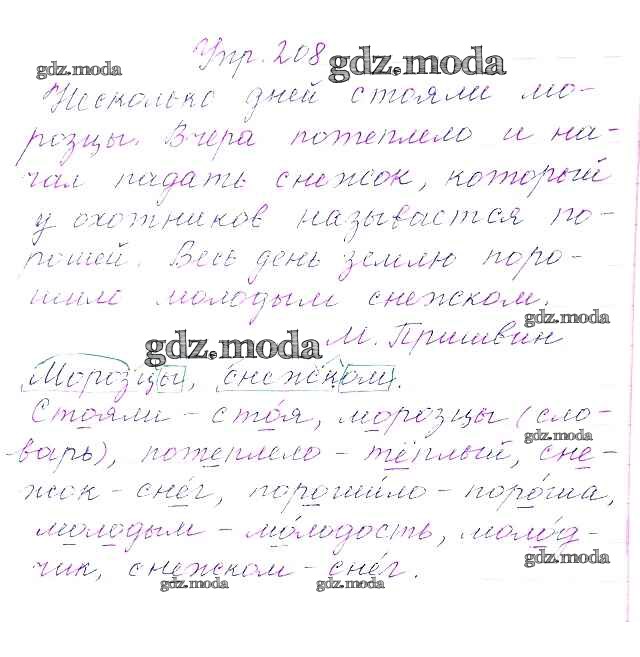 Упр. 208
gdz.moda
gdz.moda
Несколько дней стояли мо-
розцы. Вчера потеплело и на-
чал падать снежок, который
у охотников называется по-
рошей. Весь день землю поро-
шило молодым снежком.
gdz.moda
М. Пришвин
gdz.moda
Морозцы, снежком.
Стояли – стоя, морозцы (сло-
gdz.moda
варь), потеплело – тёплый, сне-
жок – снег, порошило – пороша,
молодым – молодость, молод-
gdz.moda
чик, снежком – снег.
gdz.moda
gdz.moda